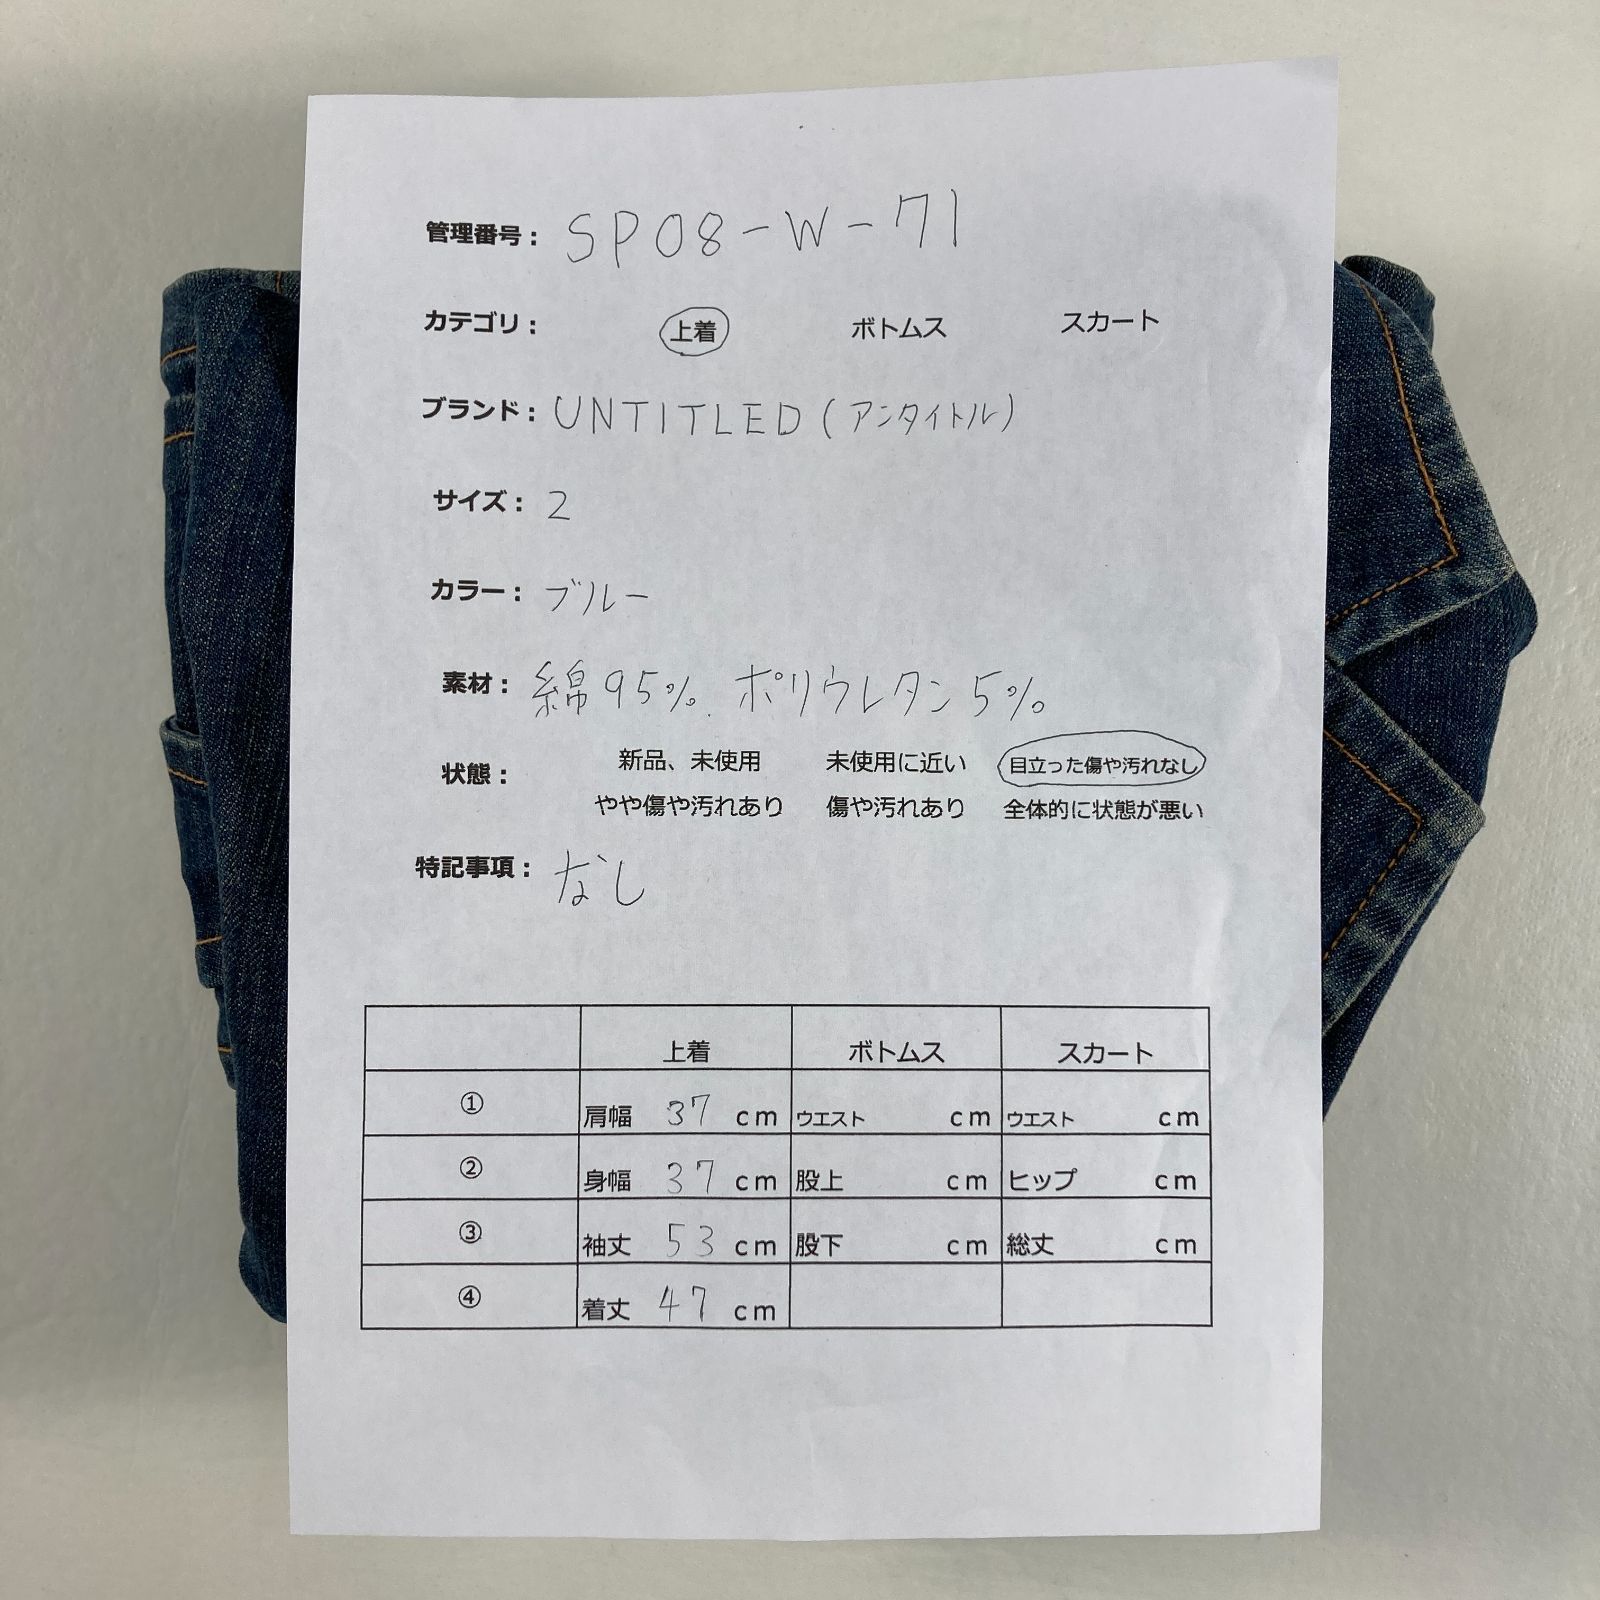 管理番号： SP08-W-71
カテゴリ： 上着 ボトムス スカート
ブランド： UNTITLED (アンタイトル)
サイズ： 2
カラー： ブルー
素材： 綿95%. ポリウレタン5%
状態： 新品、未使用 未使用に近い 目立った傷や汚れなし
やや傷や汚れあり 傷や汚れあり 全体的に状態が悪い
特記事項： なし
上着 ボトムス スカート
① 肩幅 37 cm ウエスト cm ウエスト cm
② 身幅 37 cm 股上 cm ヒップ cm
③ 袖丈 53 cm 股下 cm 総丈 cm
④ 着丈 47 cm